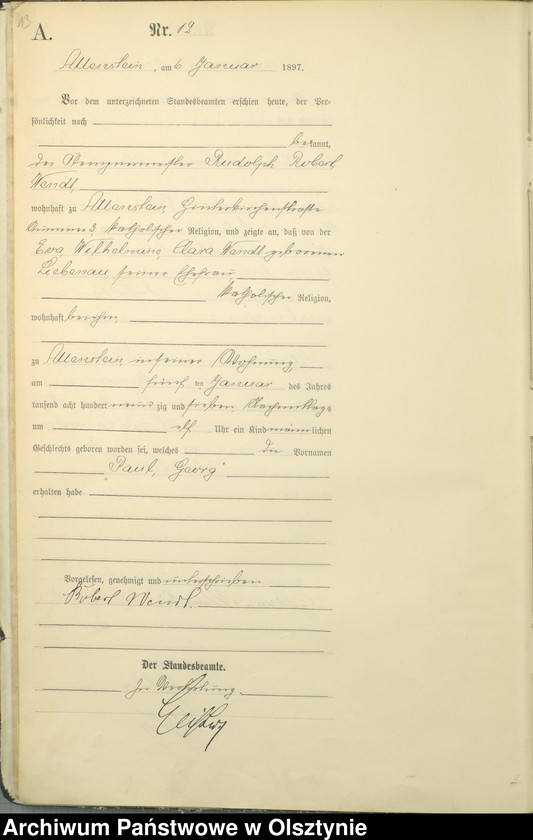 13
A.
Nr. 12
Allenstein, am 6 Januar 1897.
Vor dem unterzeichneten Standesbeamten erschien heute, der Per-
sönlichkeit nach
bekannt,
der Klempnermeister Rudolph Robert
Wendt
wohnhaft zu Allenstein
katholischer Religion, und zeigte an, daß von der
Eva Wilhelmine Clara Wendt geborenen
Liebenau seiner Ehefrau,
katholischer Religion,
wohnhaft bei ihm
zu Allenstein in seiner Wohnung
am fünf ten Januar des Jahres
tausend acht hundert neun zig und sieben Nachmittags
um elf Uhr ein Kind männlichen
Geschlechts geboren worden sei, welches die Vornamen
Paul, Georg
erhalten habe
Vorgelesen, genehmigt und unterschrieben
Robert Wendt.
Der Standesbeamte.
In Vertretung
Archiwum Państwowe w Olsztynie